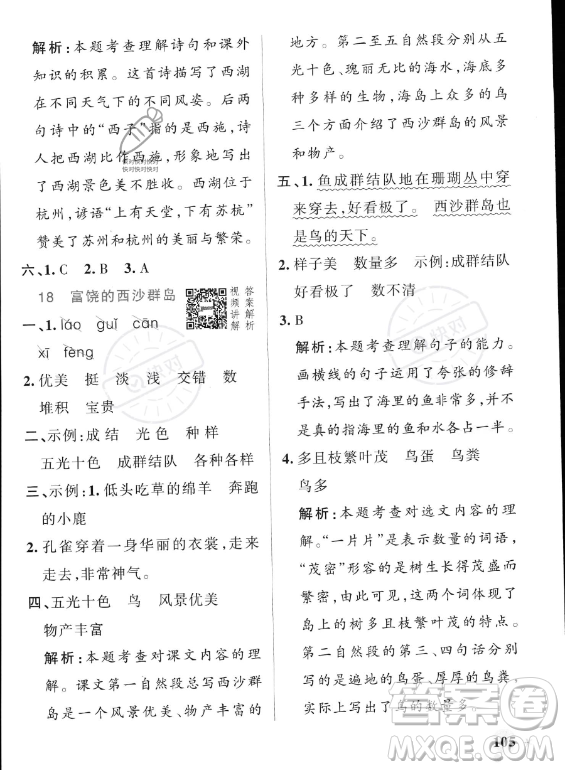 解析：本题考查理解诗句和课外
知识的积累。这首诗描写了西湖
在不同天气下的不同风姿。后两
句诗中的“西子”指的是西施，诗
人把西湖比作西施，形象地写出
了西湖景色美不胜收。西湖位于
杭州，谚语“上有天堂，下有苏杭”
赞美了苏州和杭州的美丽与繁荣。
六、1. C　2. B　3. A
18　富饶的西沙群岛
视频讲解
答案解析
一、1. láo　guǐ　cān
xī　fèng
2. 优美　挺　淡　浅　交错　数
堆积　宝贵
二、示例：成 结　光 色　种 样
五光十色　成群结队　各种各样
三、示例：1. 低头吃草的绵羊　奔跑
的小鹿
2. 孔雀穿着一身华丽的衣裳，走来
走去，非常神气。
四、五光十色　鸟　风景优美
物产丰富
解析：本题考查对课文内容的理
解。课文第一自然段总写西沙群
岛是一个风景优美、物产丰富的
地方。第二至五自然段分别从五
光十色、瑰丽无比的海水，海底多
种多样的生物，海岛上众多的鸟
三个方面介绍了西沙群岛的风景
和物产。
五、1. 鱼成群结队地在珊瑚丛中穿
来穿去，好看极了。　西沙群岛也
是鸟的天下。
2. 样子美　数量多　示例：成群结
队　好看极了　数不清
3. B
解析：本题考查理解句子的能力。
画横线的句子运用了夸张的修辞
手法，写出了海里的鱼非常多，并
不是真的指海里的鱼和水各占一半。
4. 多且枝繁叶茂　鸟蛋　鸟粪
鸟多
解析：本题考查对选文内容的理
解。“一片片”是表示数量的词语，
“茂密”形容的是树长得茂盛而
繁密，由此可见，这两个词体现了
岛上的树多且枝繁叶茂的特点。
第二自然段的第三、四句话分别
写的是遍地的鸟蛋、厚厚的鸟粪，
实际上写出了鸟的数量多。
105
答案圈
MXQE.COM